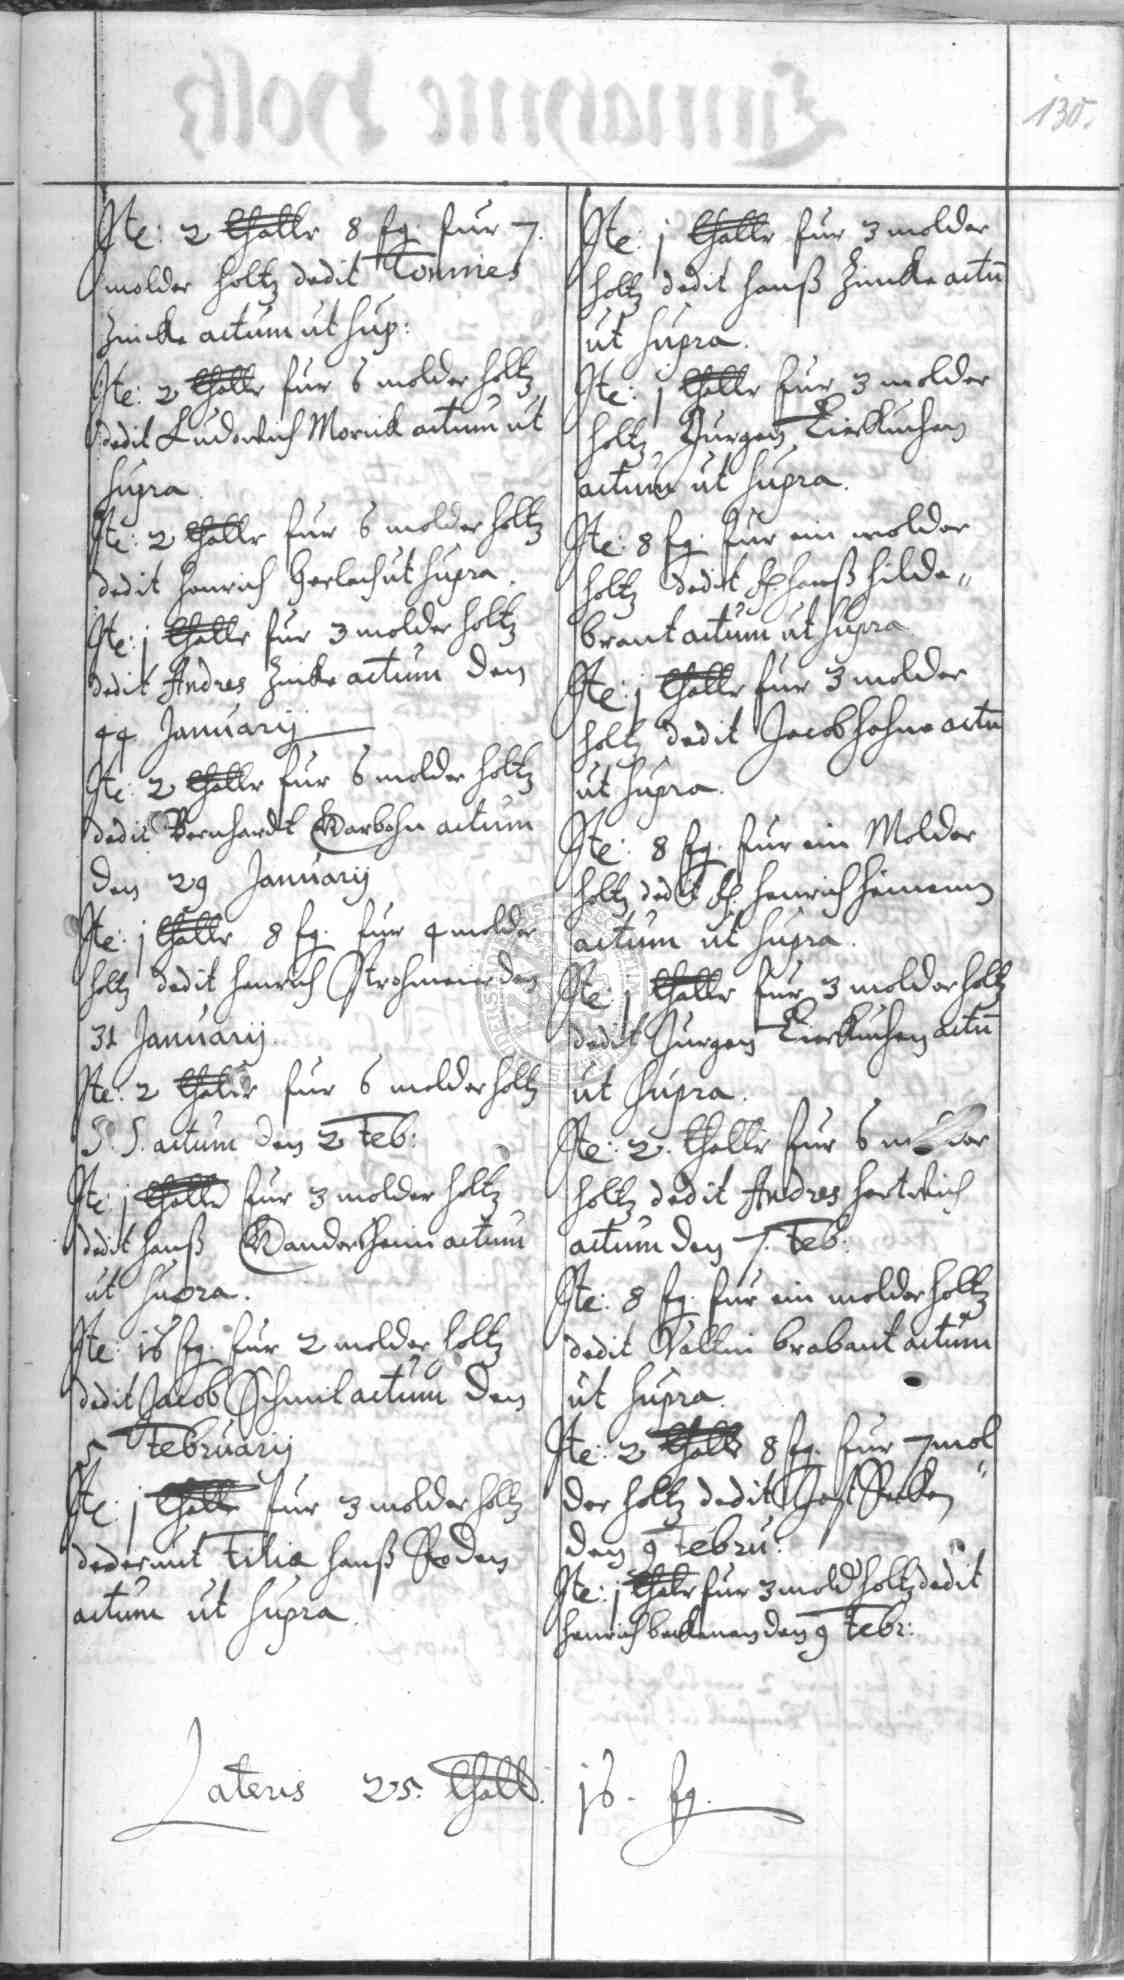 130.
Ite: 2 thallr 8 fg. fur 7.
molder holtz dedit Tonnies
Zincke actum ut sup:
Ite: 2 thallr fur 6 molder holtz
dedit Ludowich Morick actum ut
supra
Ite: 2 thallr fur 6 molder holtz
dedit Henrich Gerlach ut supra.
Ite: j thallr fur 3 molder holtz
dedit Andres Zincke actum den
Januarij
Ite: 2 thallr fur 6 molder holtz
dedit Bernhardt Warbohn actum
den 29 Januarij
Ite: j thallr 8 fg. fur 4 molder
holtz dedit Henrich Strohmeier den
31 Januarij.
Ite: 2 thallr fur 6 molder holtz
S. S. actum den 2 Feb:
Ite: j thallr fur 3 molder holtz
dedit Hanß Wandersheim actum
ut supra.
Ite: j6 fg. fur 2 molder holtz
dedit Jacob Schmit actum den
5 Februarij
Ite: j thallr fur 3 molder holtz
dederunt Filiæ Hanß Roden
actum ut supra.
Ite: j thallr fur 3 molder
holtz dedit Hanß Zincke actū
ut supra.
Ite: j thallr fur 3 molder
holtz Jurgen Eierkuchen
actum ut supra.
Ite: 8 fg. fur ein molder
holtz dedit Hanß Hilde„
brant actum ut supra
Ite: j thallr fur 3 molder
holtz dedit Jacob Hohne actū
ut supra.
Ite: 8 fg. fur ein Molder
holtz dedit Henrich Heimenn
actum ut supra.
Ite: j thallr fur 3 molder holtz
dedit Jurgen Eierkuchen actū
ut supra.
Ite: 2. thallr fur 6 molder
holtz dedit Andres Hertwich
actum den 7. Feb:
Ite: 8 fg. fur ein molder holtz
dedit Valtin brabant actum
ut supra.
Ite: 2 thall 8 fg. fur 7 mol„
der holtz dedit
den 9 Febru:
Ite: j thalr fur 3 mold holtz dedit
Henrich beckman den 9 Febr:
Lateris 25. thall. j6. fg.